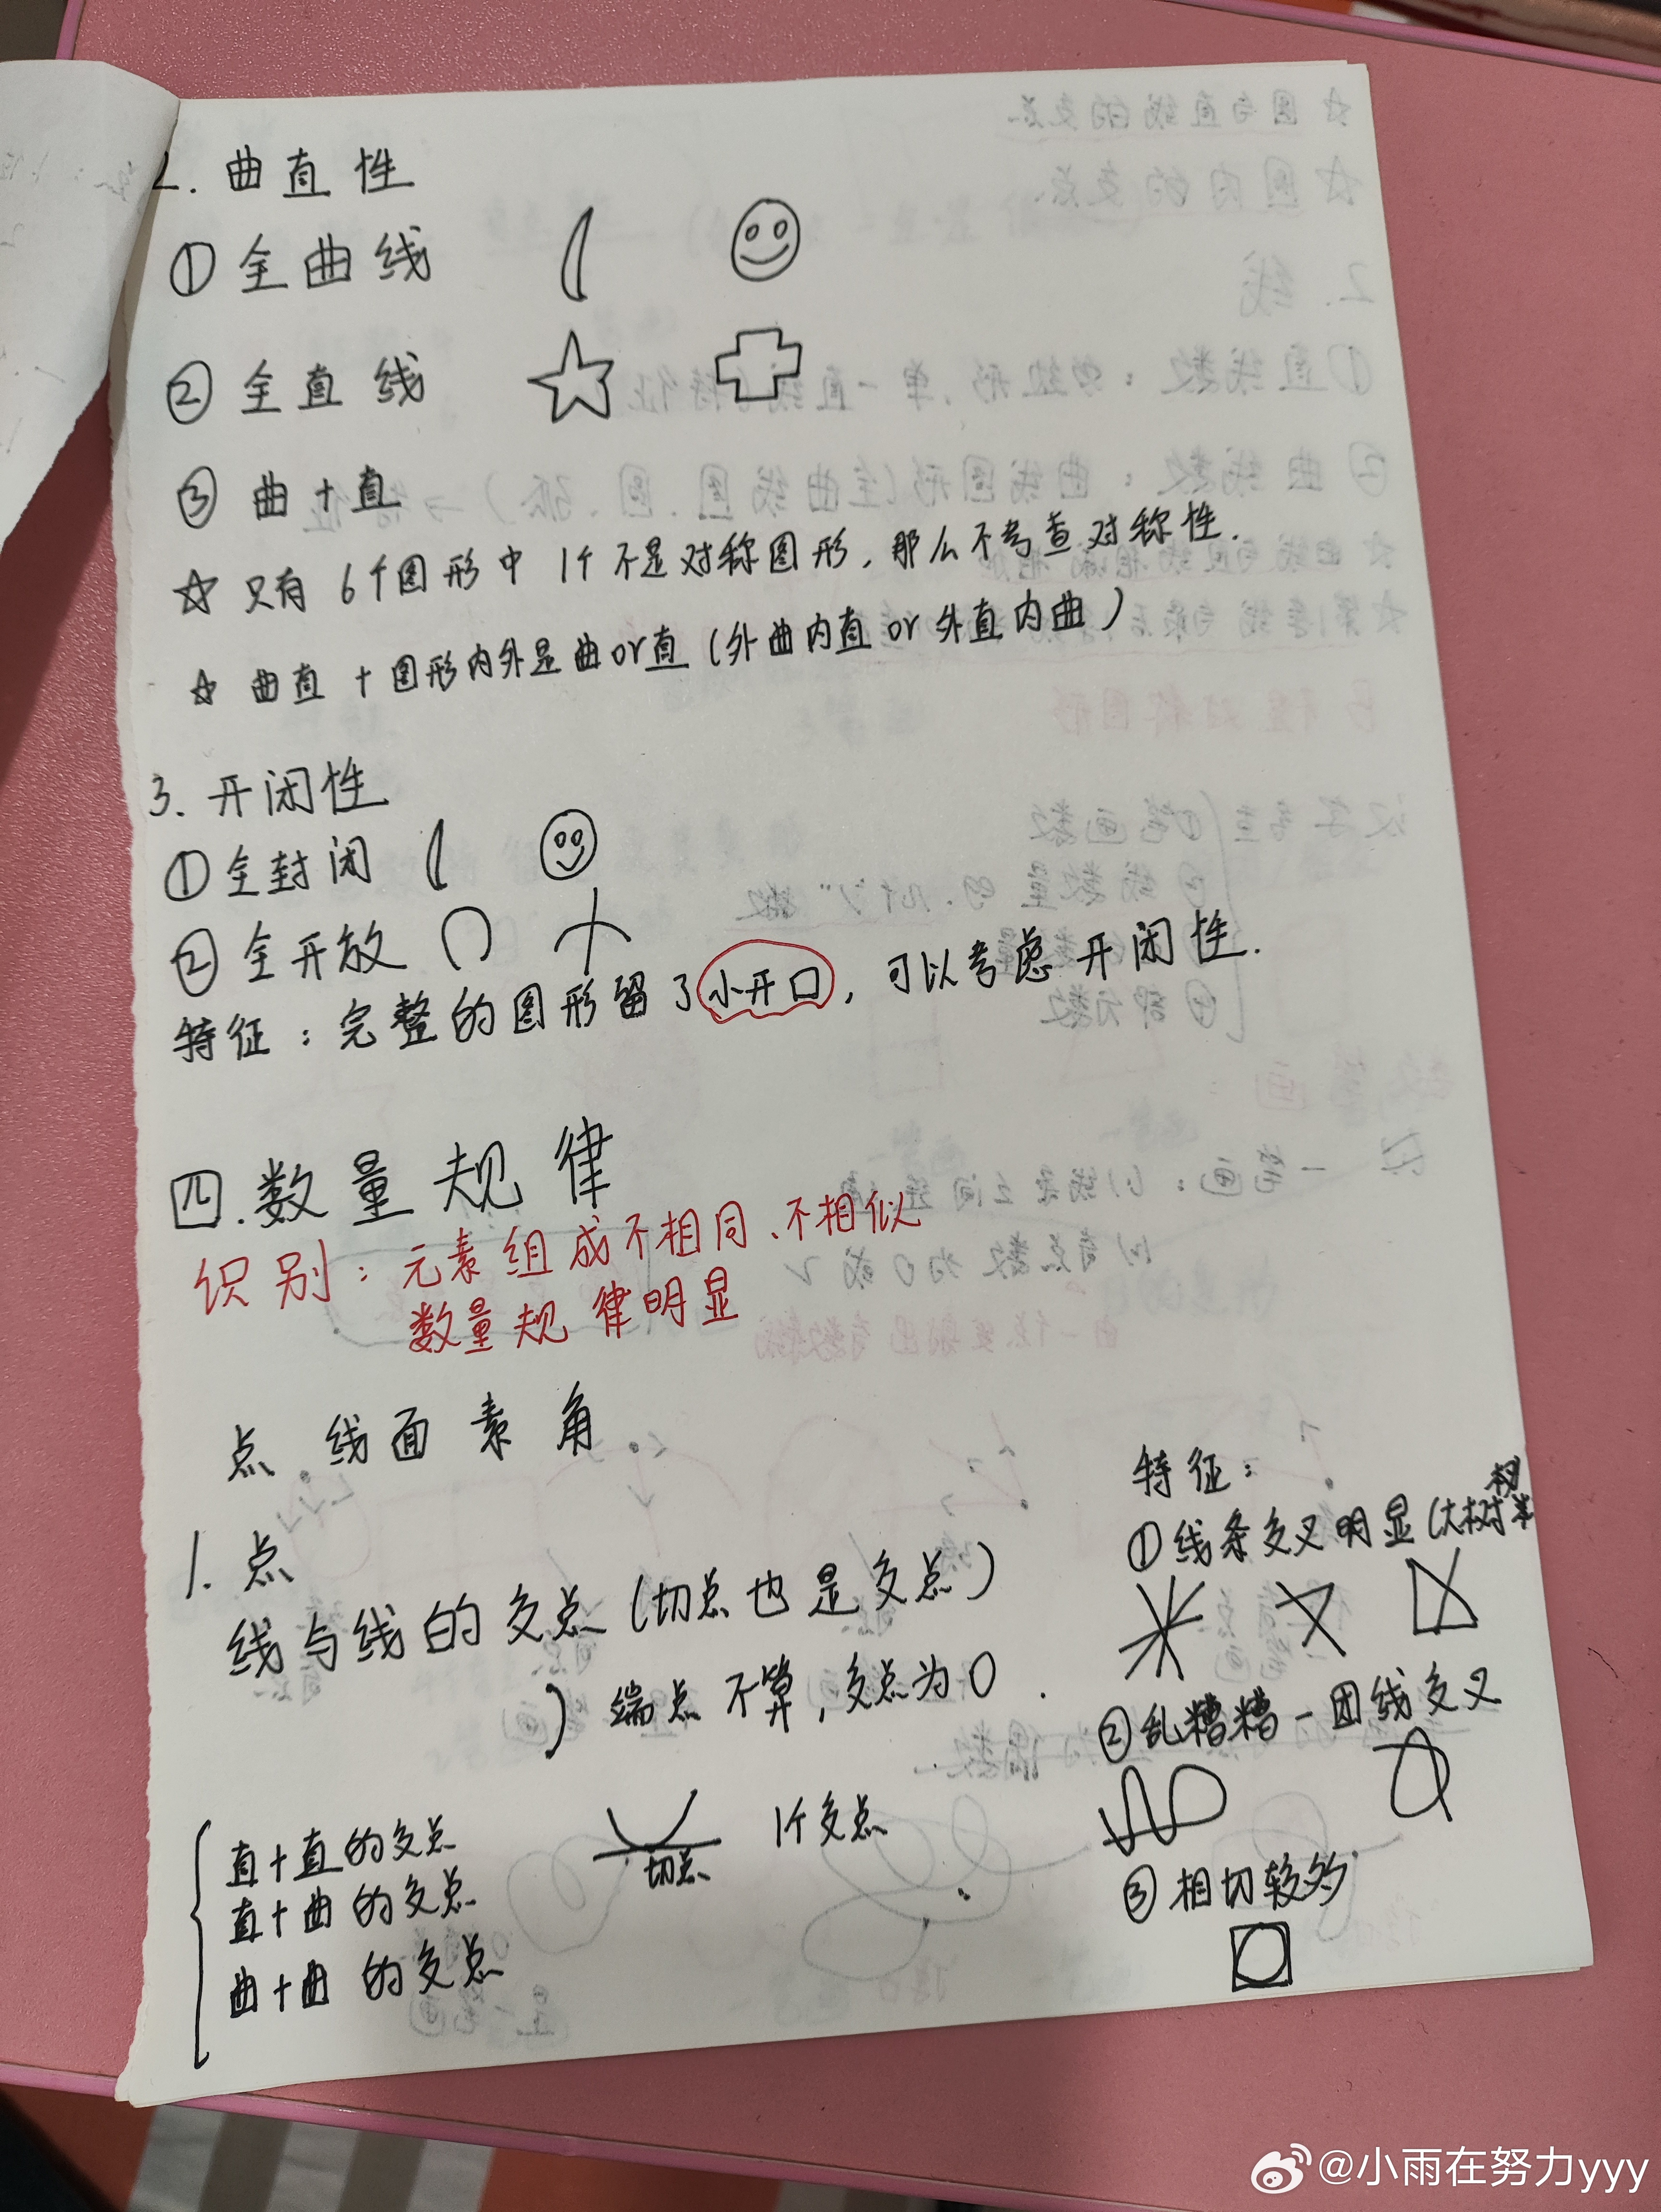 2. 曲直性
① 全曲线
② 全直线
③ 曲+直
☆ 只有6个图形中1个不是对称图形，那么不考查对称性.
☆ 曲直+图形内外是曲or直(外曲内直or外直内曲)
3. 开闭性
①全封闭
②全开放
特征：完整的图形留了小开口，可以考虑开闭性.
四.数量规律
识别：元素组成不相同、不相似
数量规律明显
点、线面素角
1. 点
线与线的交点(切点也是交点)
) 端点不算，交点为0.
直+直的交点
直+曲的交点
曲+曲的交点
切点
1个交点
特征：
①线条交叉明显(大树
②乱糟糟一团线交叉
③相切较多
@小雨在努力yyy